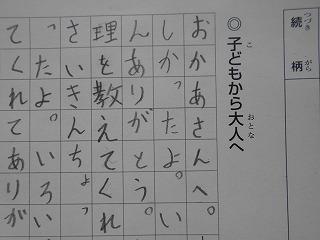 続柄
つづき がら
◎子どもから大人へ
こ おとな
おかあさんへ。
しかったよ。い
んありがとう。
理を教えてくれ
さいきんちょっ
ったよ。いろい
てくれて。あリがい